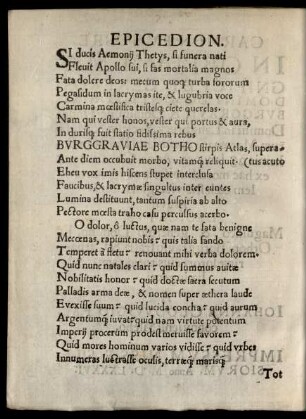 EPICEDION.
SI ducis Aemonij Thetys, si funera nati
Fleuit Apollo sui, si fas mortalia magnos
Fata dolere deos: mecum quoq; turba sororum
Pegasidum in lacrymas ite, & lugubria voce
Carmina mœstifica tristesq; ciete querelas.
Nam qui vester honos, vester qui portus & aura,
In durisq; fuit statio fidissima rebus
BVRGGRAVIAE BOTHO stirpis Atlas, supera-
Ante diem occubuit morbo, vitamq; reliquit. (tus acuto
Eheu vox imis hiscens stupet interclusa
Faucibus, & lacrymæ singultus inter euntes
Lumina destituunt, tantum suspiria ab alto
Pectore mœsta traho casu percussus acerbo.
O dolor, ô luctus, quæ nam te fata benigne
Mecœnas, rapiunt nobis? quis talia fando
Temperet à fletu? renouant mihi verba dolorem.
Quid nunc natales clari? quid summus auitæ
Nobilitatis honor? quid doctæ sacra secutum
Palladis arma deæ, & nomen super æthera laude
Evexisse suum? quid lucida concha? quid aurum
Argentumq; iuvat? quid nam virtute potentum
Imperij procerum prodest meruisse favorem?
Quid mores hominum varios vidisse? quid vrbes
Innumeras lustrasse oculis, terræq; marisq;
Tot